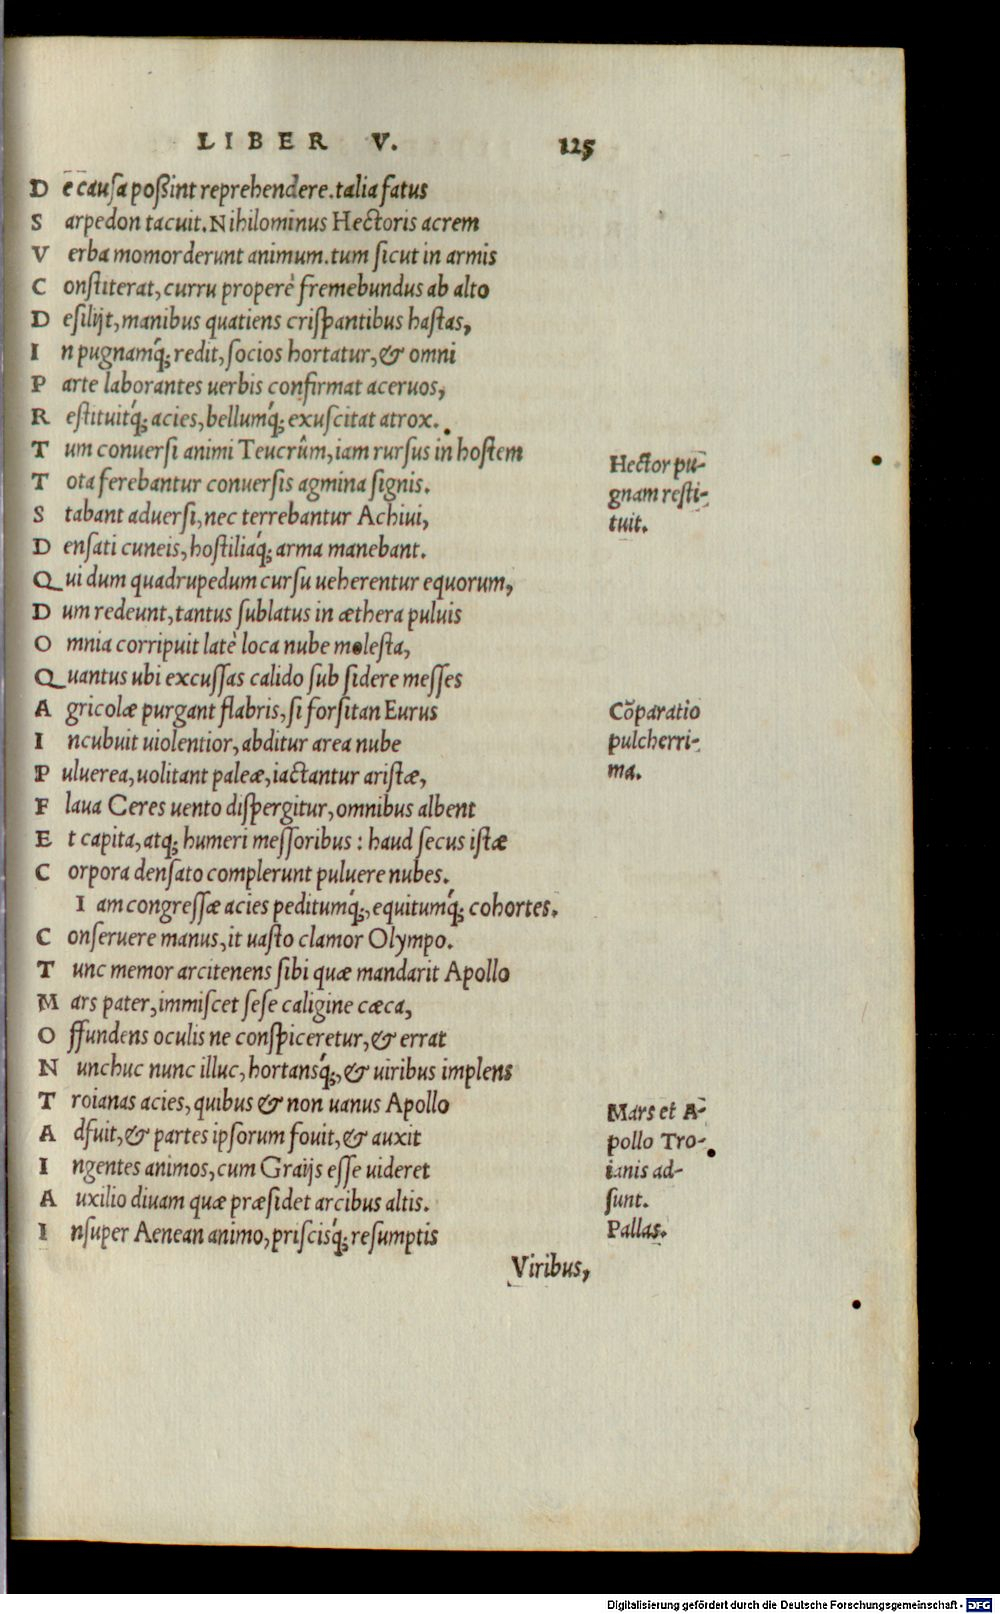 LIBER V. 125
De causa poßint reprehendere. talia fatus
Sarpedon tacuit. Nihilominus Hectoris acrem
Verba momorderunt animum. tum ſicut in armis
Conſtiterat, curru properè fremebundus ab alto
Deſilijt, manibus quatiens criſpantibus haſtas,
In pugnamq́; redit, ſocios hortatur, & omni
Parte laborantes uerbis confirmat aceruos,
Reſtituitq́; acies, bellumq́; exuſcitat atrox.
Tum conuerſi animi Teucrûm, iam rurſus in hoſtem
Tota ferebantur conuerſis agmina ſignis.
Stabant aduerſi, nec terrebantur Achiui,
Denſati cuneis, hoſtiliaq́; arma manebant.
Qui dum quadrupedum curſu ueherentur equorum,
Dum redeunt, tantus ſublatus in æthera puluis
Omnia corripuit latè loca nube moleſta,
Quantus ubi excuſſas calido ſub ſidere meſſes
Agricolæ purgant flabris, ſi forſitan Eurus
Incubuit uiolentior, abditur area nube
Puluerea, uolitant paleæ, iactantur ariſtæ,
Flaua Ceres uento diſpergitur, omnibus albent
Et capita, atq; humeri meſſoribus : haud ſecus iſtæ
Corpora denſato complerunt puluere nubes.
Iam congreſſæ acies peditumq́;, equitumq́; cohortes.
Conſeruere manus, it uaſto clamor Olympo.
Tunc memor arcitenens ſibi quæ mandarit Apollo
Mars pater, immiſcet ſeſe caligine cæca,
Offundens oculis ne conſpiceretur, & errat
Nunc huc nunc illuc, hortansq́;, & uiribus implens
Troianas acies, quibus & non uanus Apollo
Adfuit, & partes ipſorum fouit, & auxit
Ingentes animos, cum Graijs eſſe uideret
Auxilio diuam quæ præſidet arcibus altis.
Inſuper Aenean animo, priſcisq́; reſumptis
Viribus,
Hector pu-
gnam reſti-
tuit.
Cõparatio
pulcherri-
ma.
Mars et A-
pollo Tro-
ianis ad-
ſunt.
Pallas.
Digitalisierung gefördert durch die Deutsche Forschungsgemeinschaft - DFG